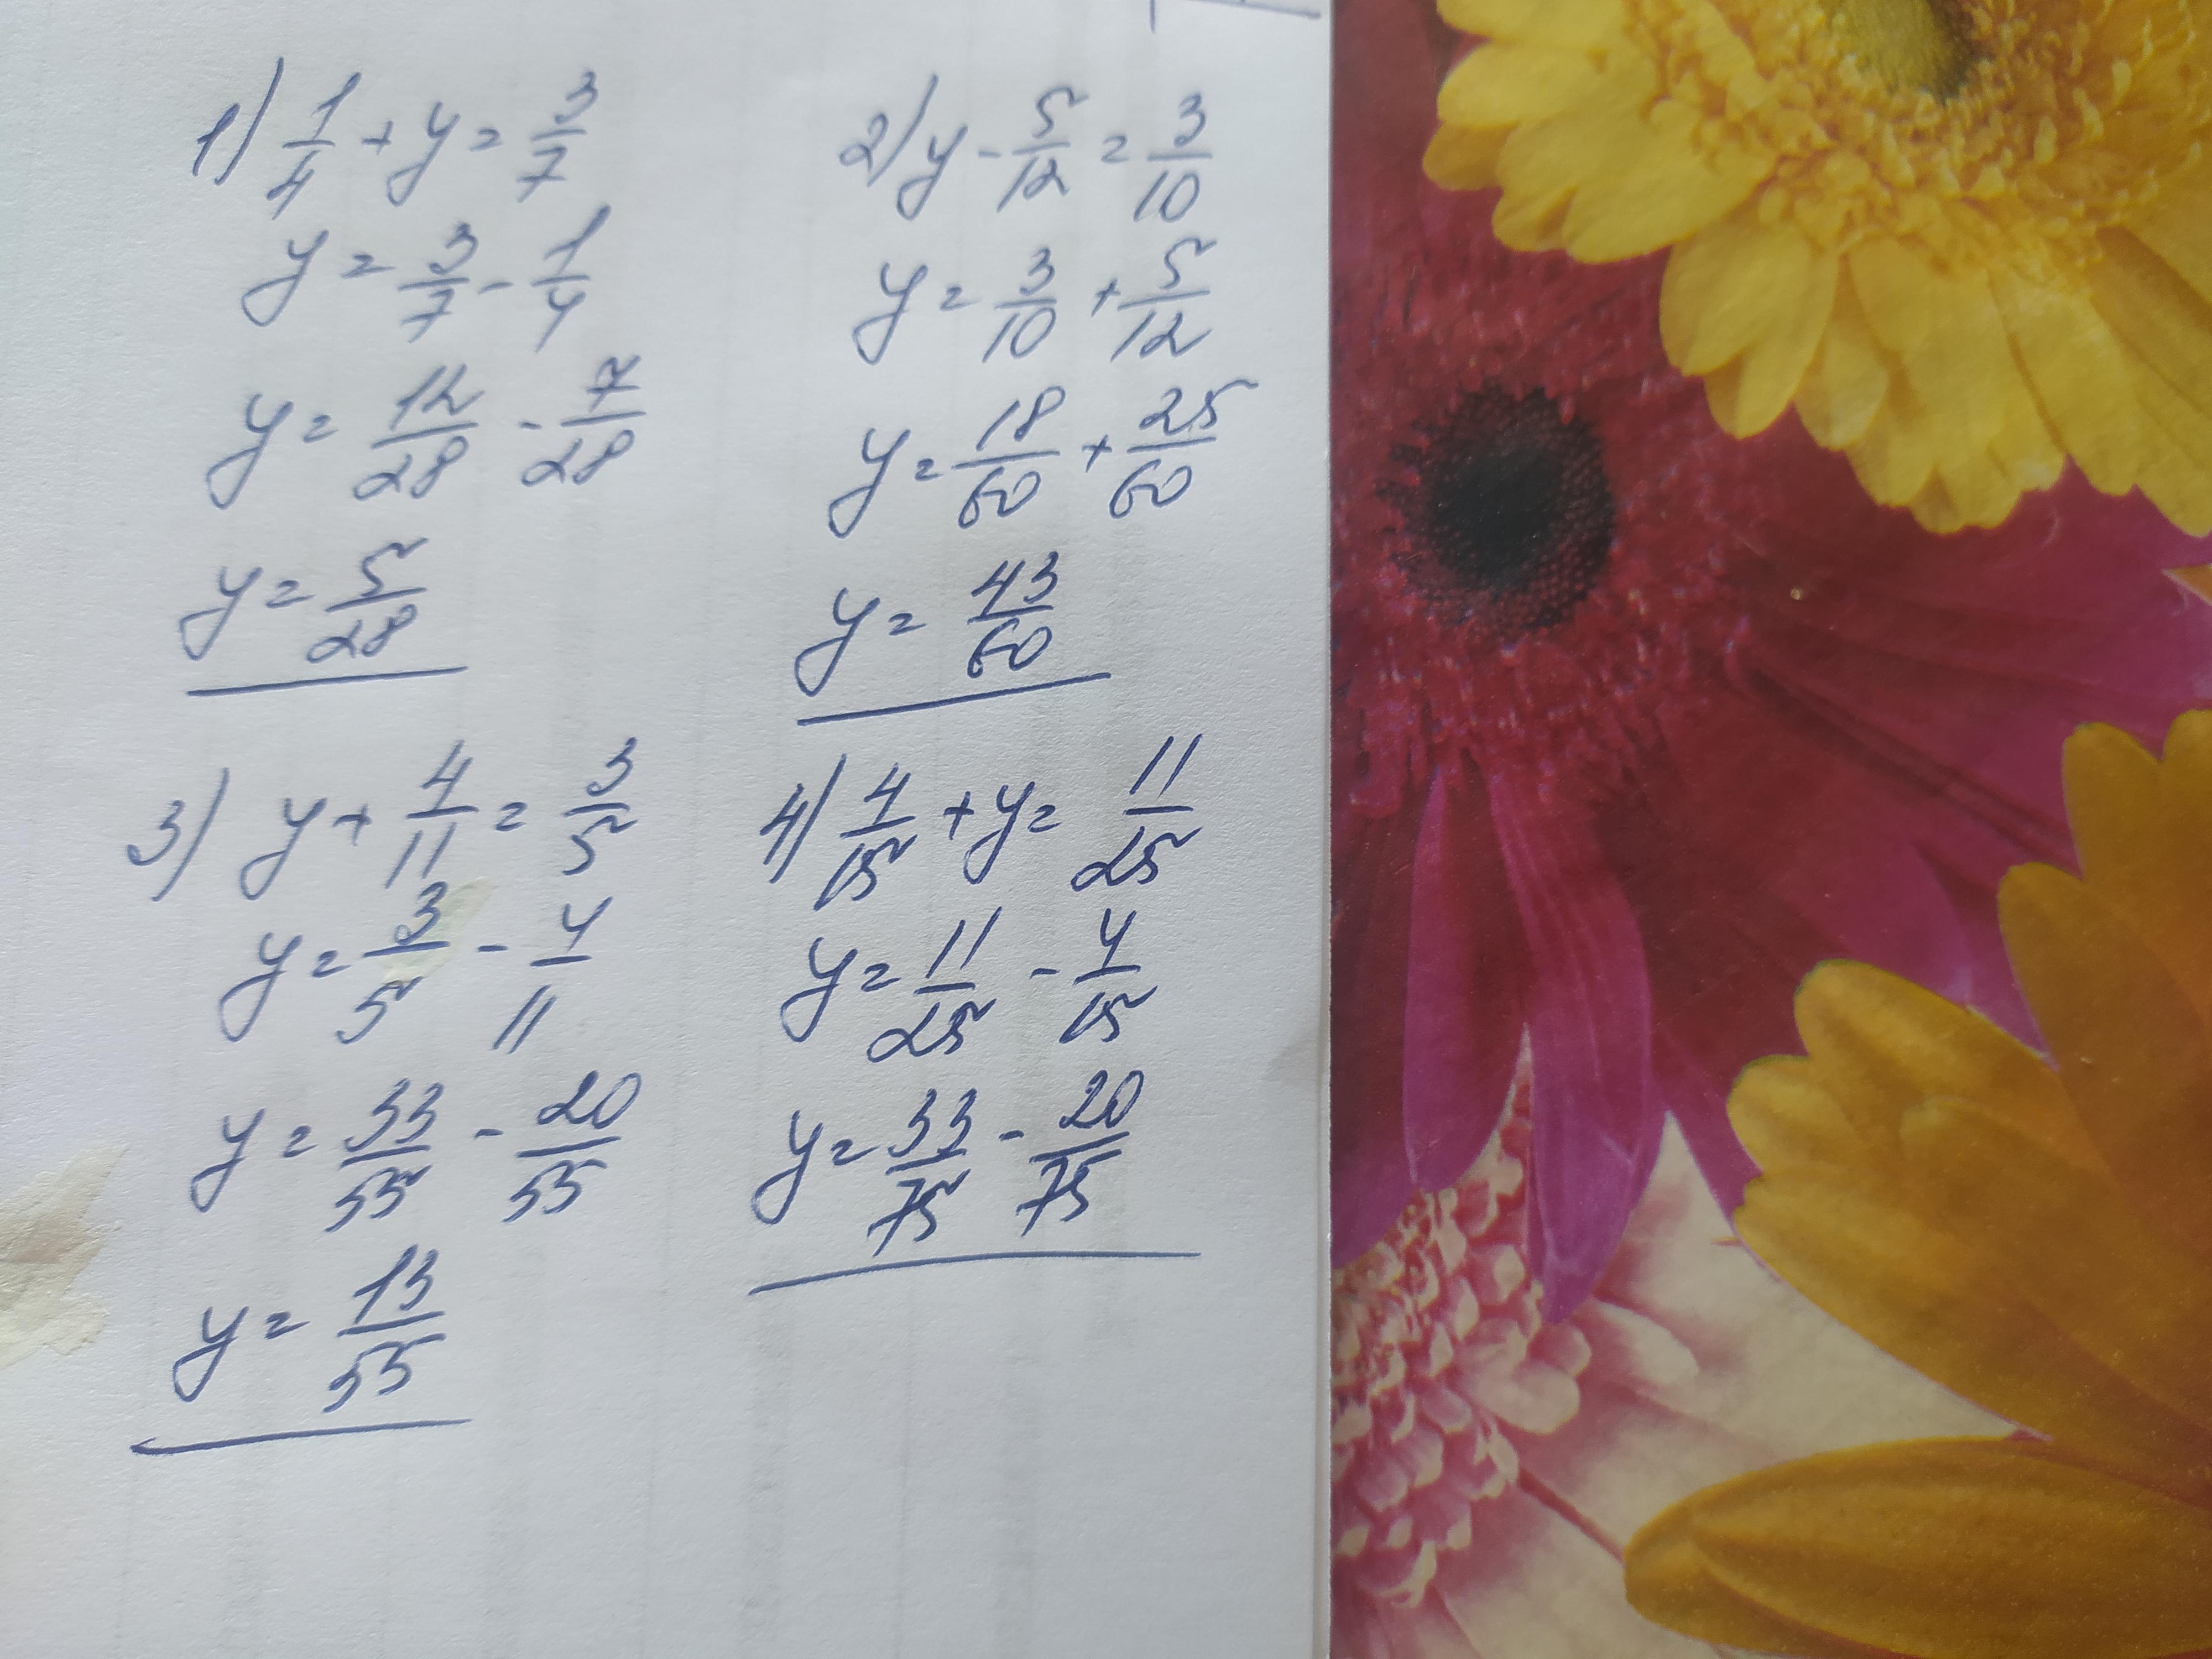 1) 1/4 + y = 3/7
y = 3/7 - 1/4
y = 12/28 - 7/28
y = 5/28
2) y - 5/12 = 3/10
y = 3/10 + 5/12
y = 18/60 + 25/60
y = 43/60
3) y + 4/11 = 3/5
y = 3/5 - 4/11
y = 33/55 - 20/55
y = 13/55
4) 4/15 + y = 11/25
y = 11/25 - 4/15
y = 33/75 - 20/75